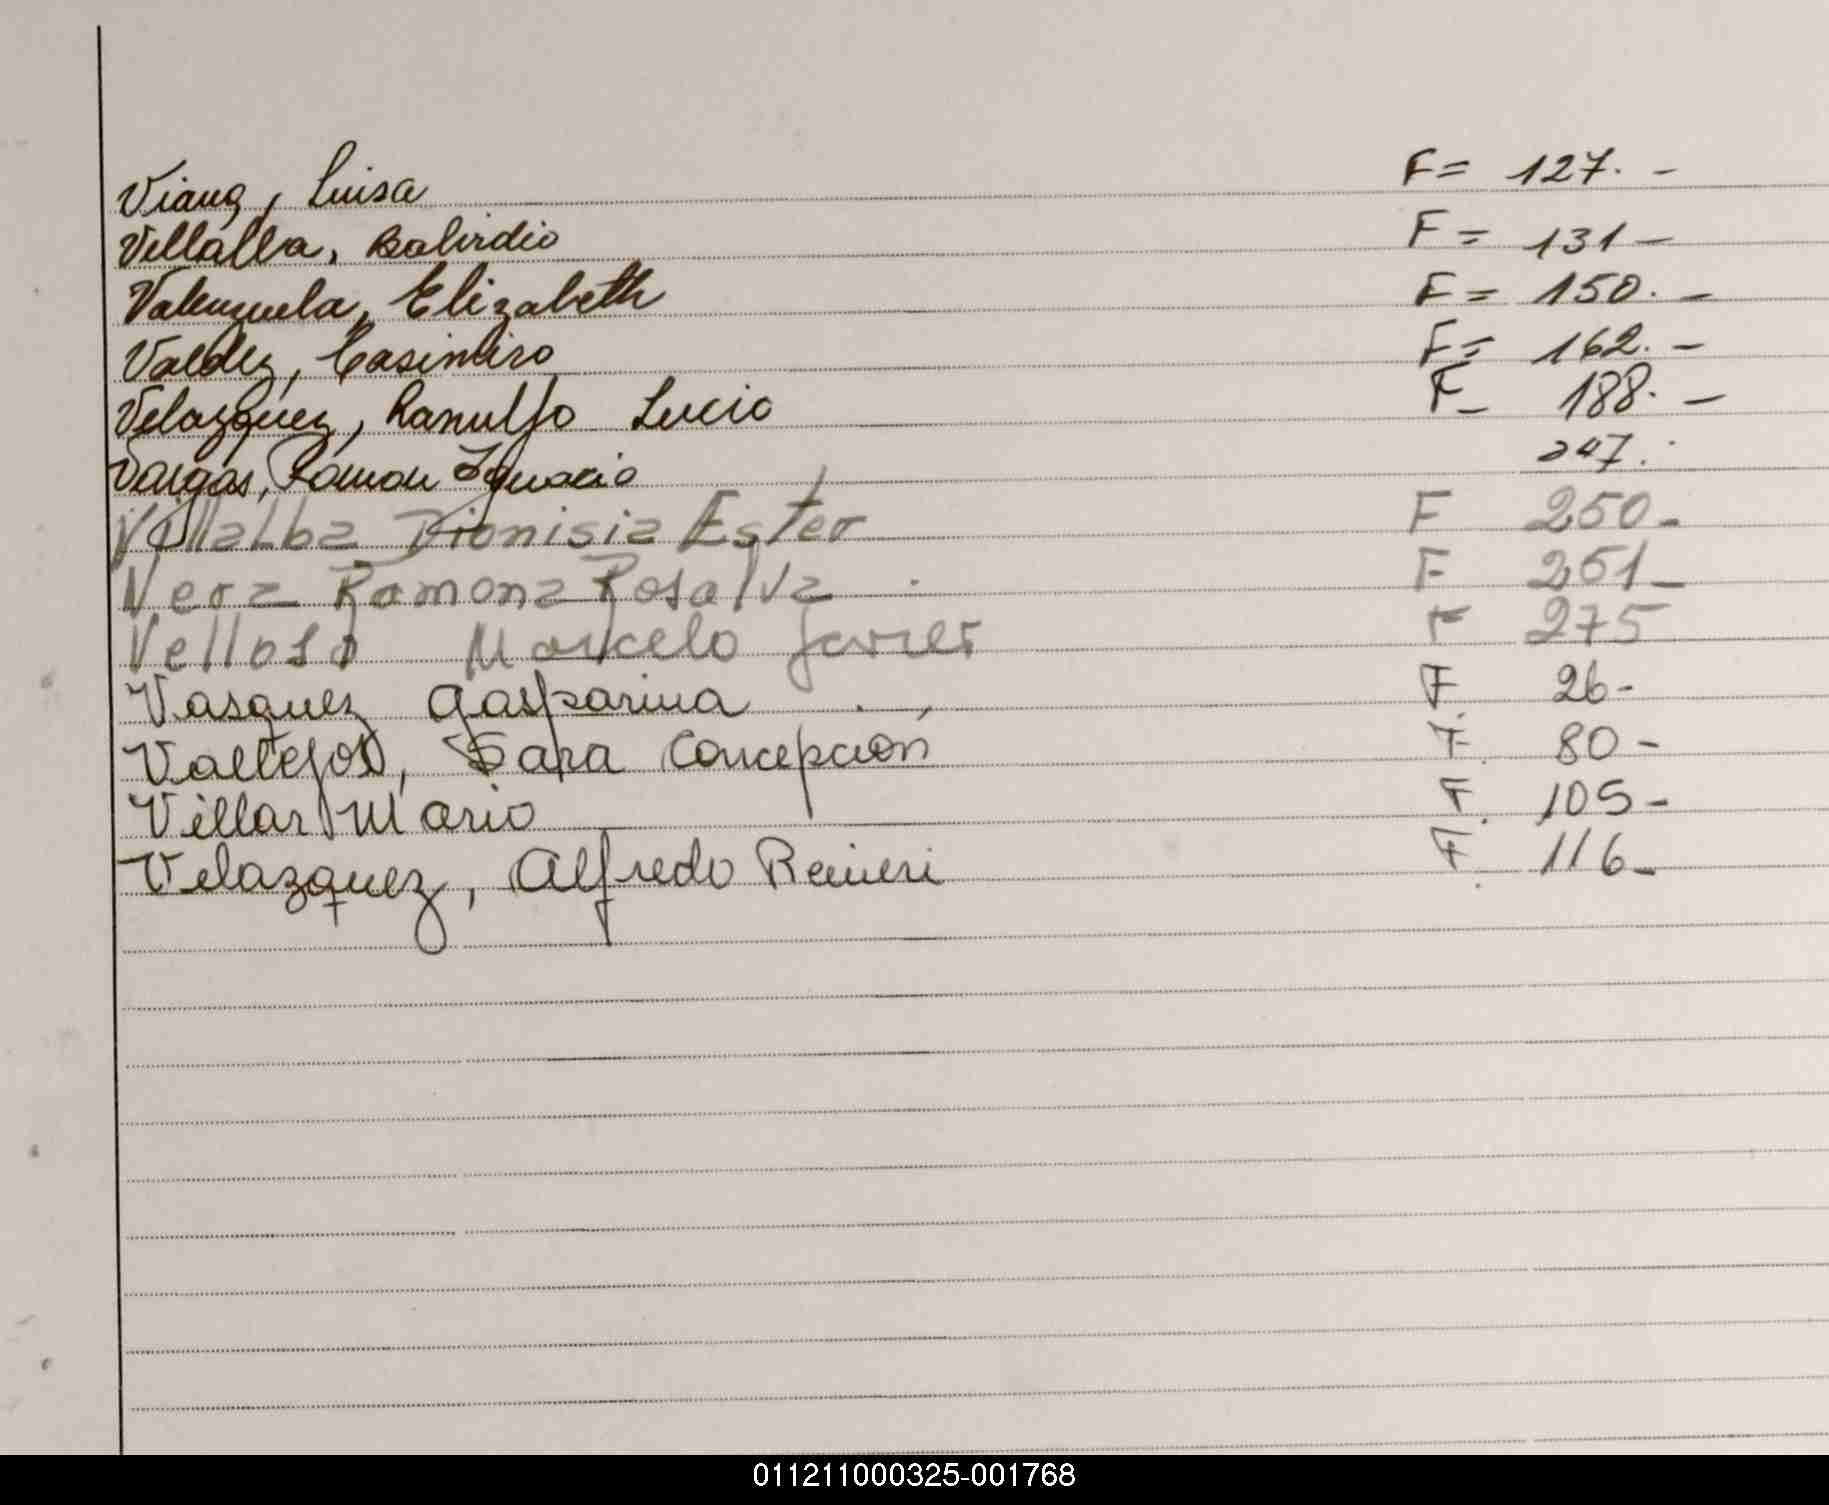 Viana, Luisa F= 127. -
Villalba, F= 131 -
Valenzuela, Elizabeth F= 150. -
Valdez, Casimiro F= 162. -
Velazquez, Ranulfo Lucio F- 188. -
Vargas, Ramon Ignacio 247.
Villalba Dionisia Ester F 250 -
Vera Ramona Rosalva F 251 -
Velloso Marcelo Javier F 275
Vasquez Gasparina F. 26 -
Vallejos, Sara Concepcion F. 80 -
Villar Mario F. 105 -
Velazquez, Alfredo Renieri F. 116 -
011211000325-001768